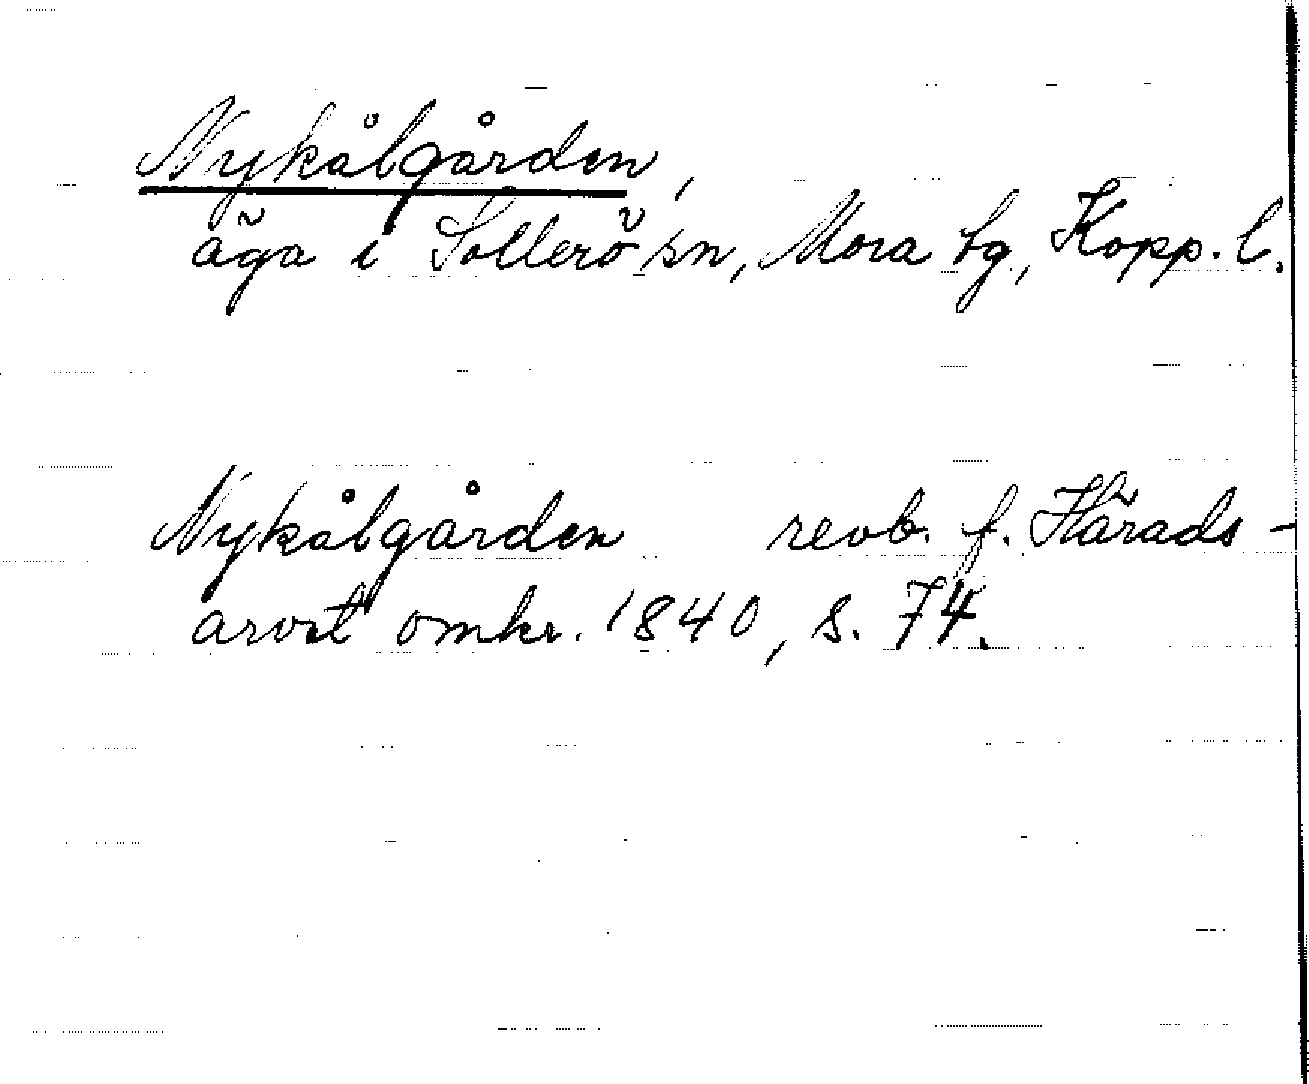 Nykålgården,
äga i Sollerö sn, Mora tg, Kopp. l.
Nykålgården revb. f. Härads-
arvet omkr. 1840, s. 74.